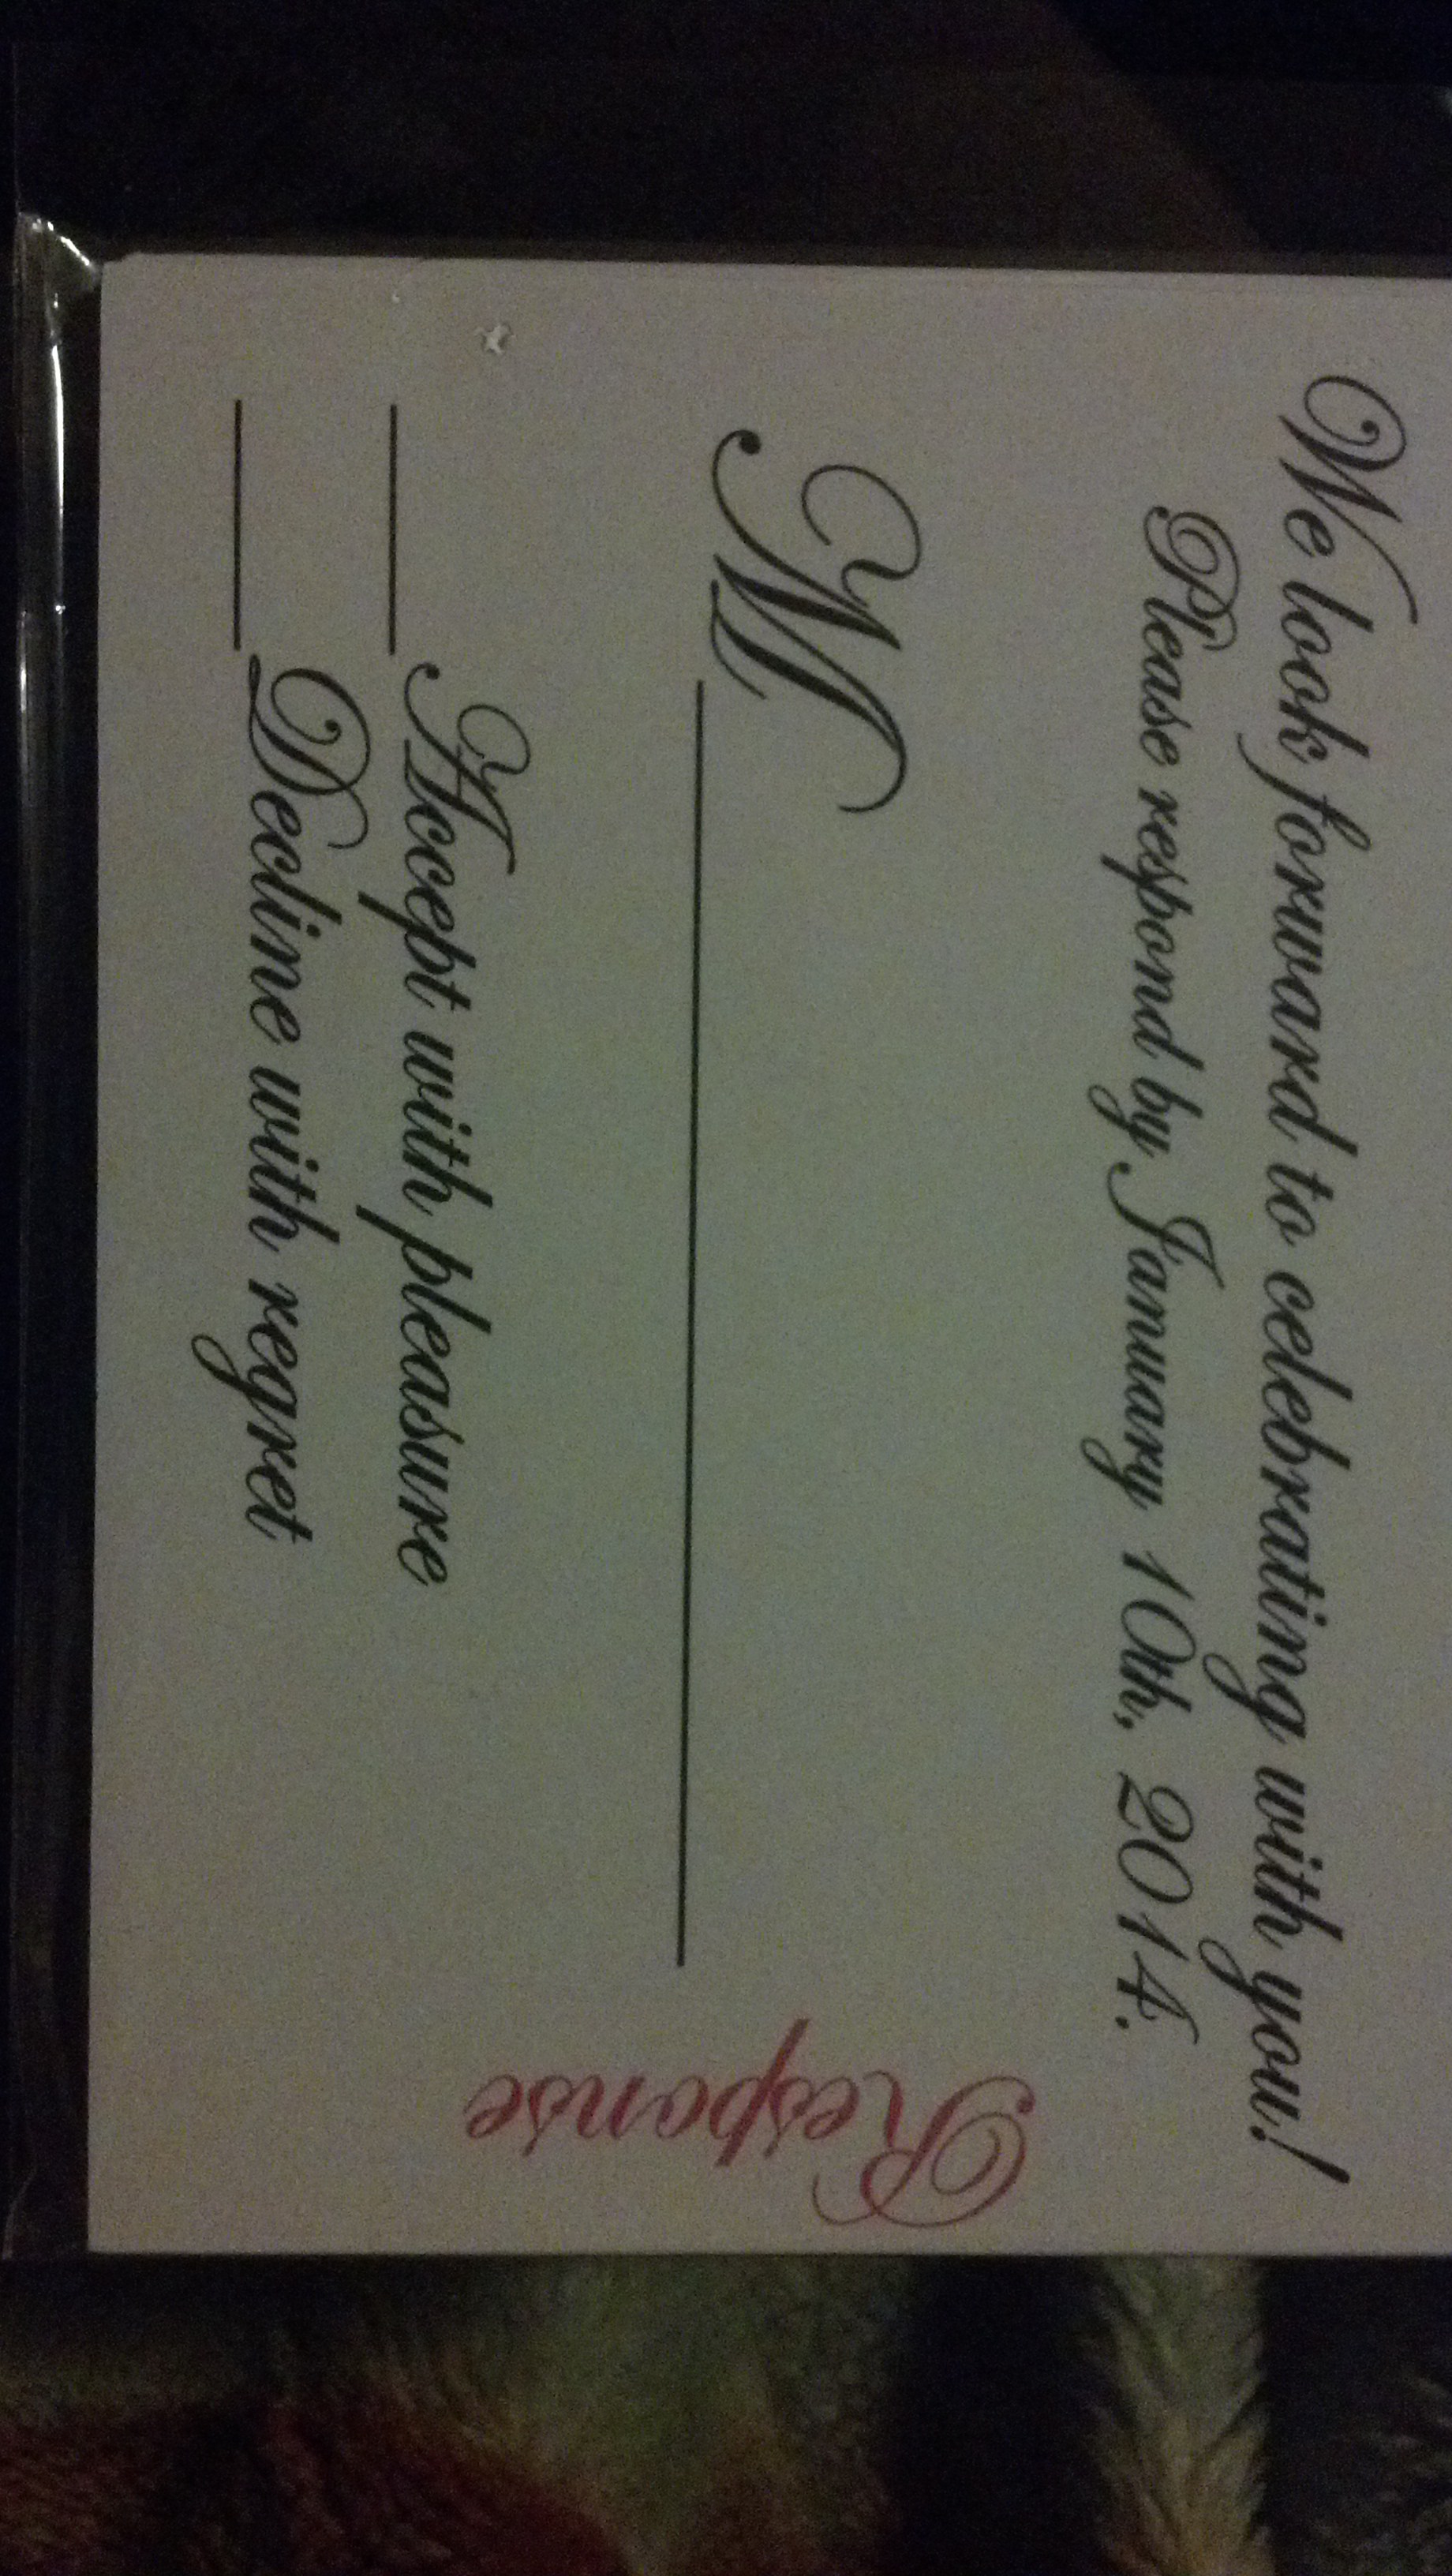 We look forward to celebrating with you!
Please respond by January 10th, 2014.
M
Accept with pleasure
Decline with regret
Response